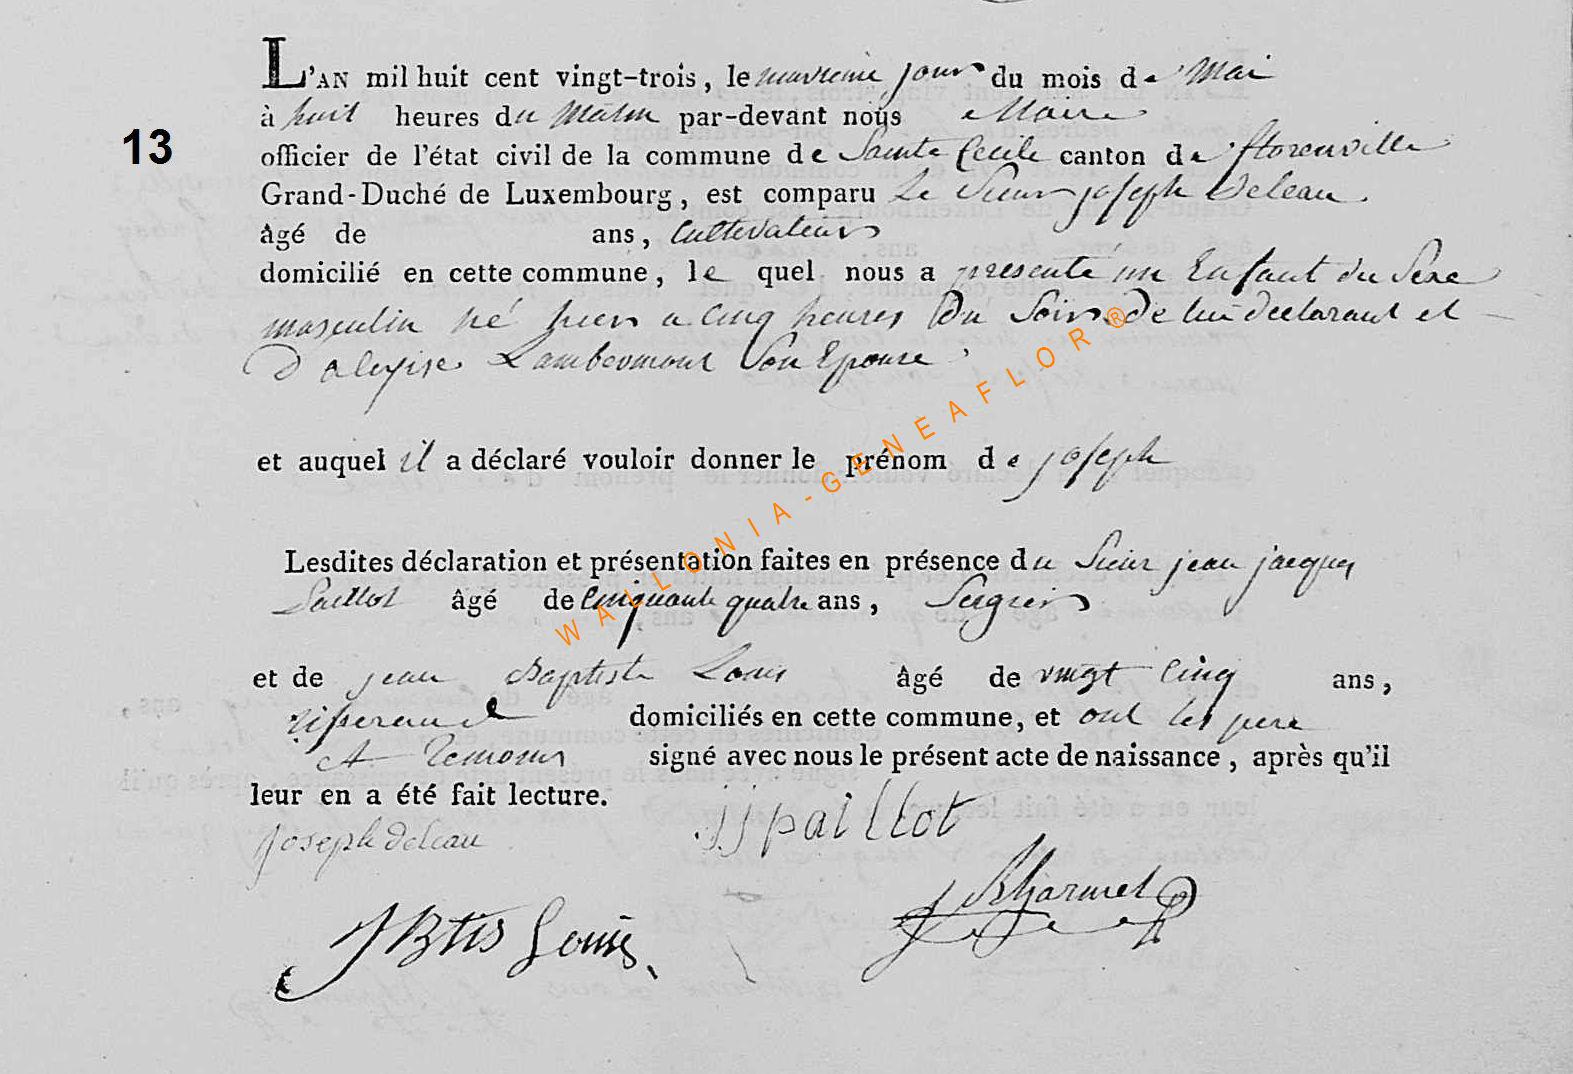 L'AN mil huit cent vingt-trois, le neuvieme jour du mois de Mai
à huit heures du Matin par-devant nous Maire
13
officier de l'état civil de la commune de Sainte Cecile canton de florenville
Grand-Duché de Luxembourg, est comparu Le Sieur joseph deleau
âgé de ans, Cultivateur
domicilié en cette commune, le quel nous a presenté un Enfant du Sexe
masculin né hier a cinq heures du Soir de lui declarant et
D'aleyise Lambermont Son Epouse
et auquel il a déclaré vouloir donner le prénom de joseph
Lesdites déclaration et présentation faites en présence du Sieur jean jacques
Paillot âgé de Cinquante quatre ans,
et de jean Baptiste Louis âgé de vingt Cinq ans,
tisserand domiciliés en cette commune, et ont les pere
et Temoins signé avec nous le présent acte de naissance, après qu'il
leur en a été fait lecture.
joseph deleau jjpaillot
JBtis Louis
WALLONIA-GENEAFLOR ®